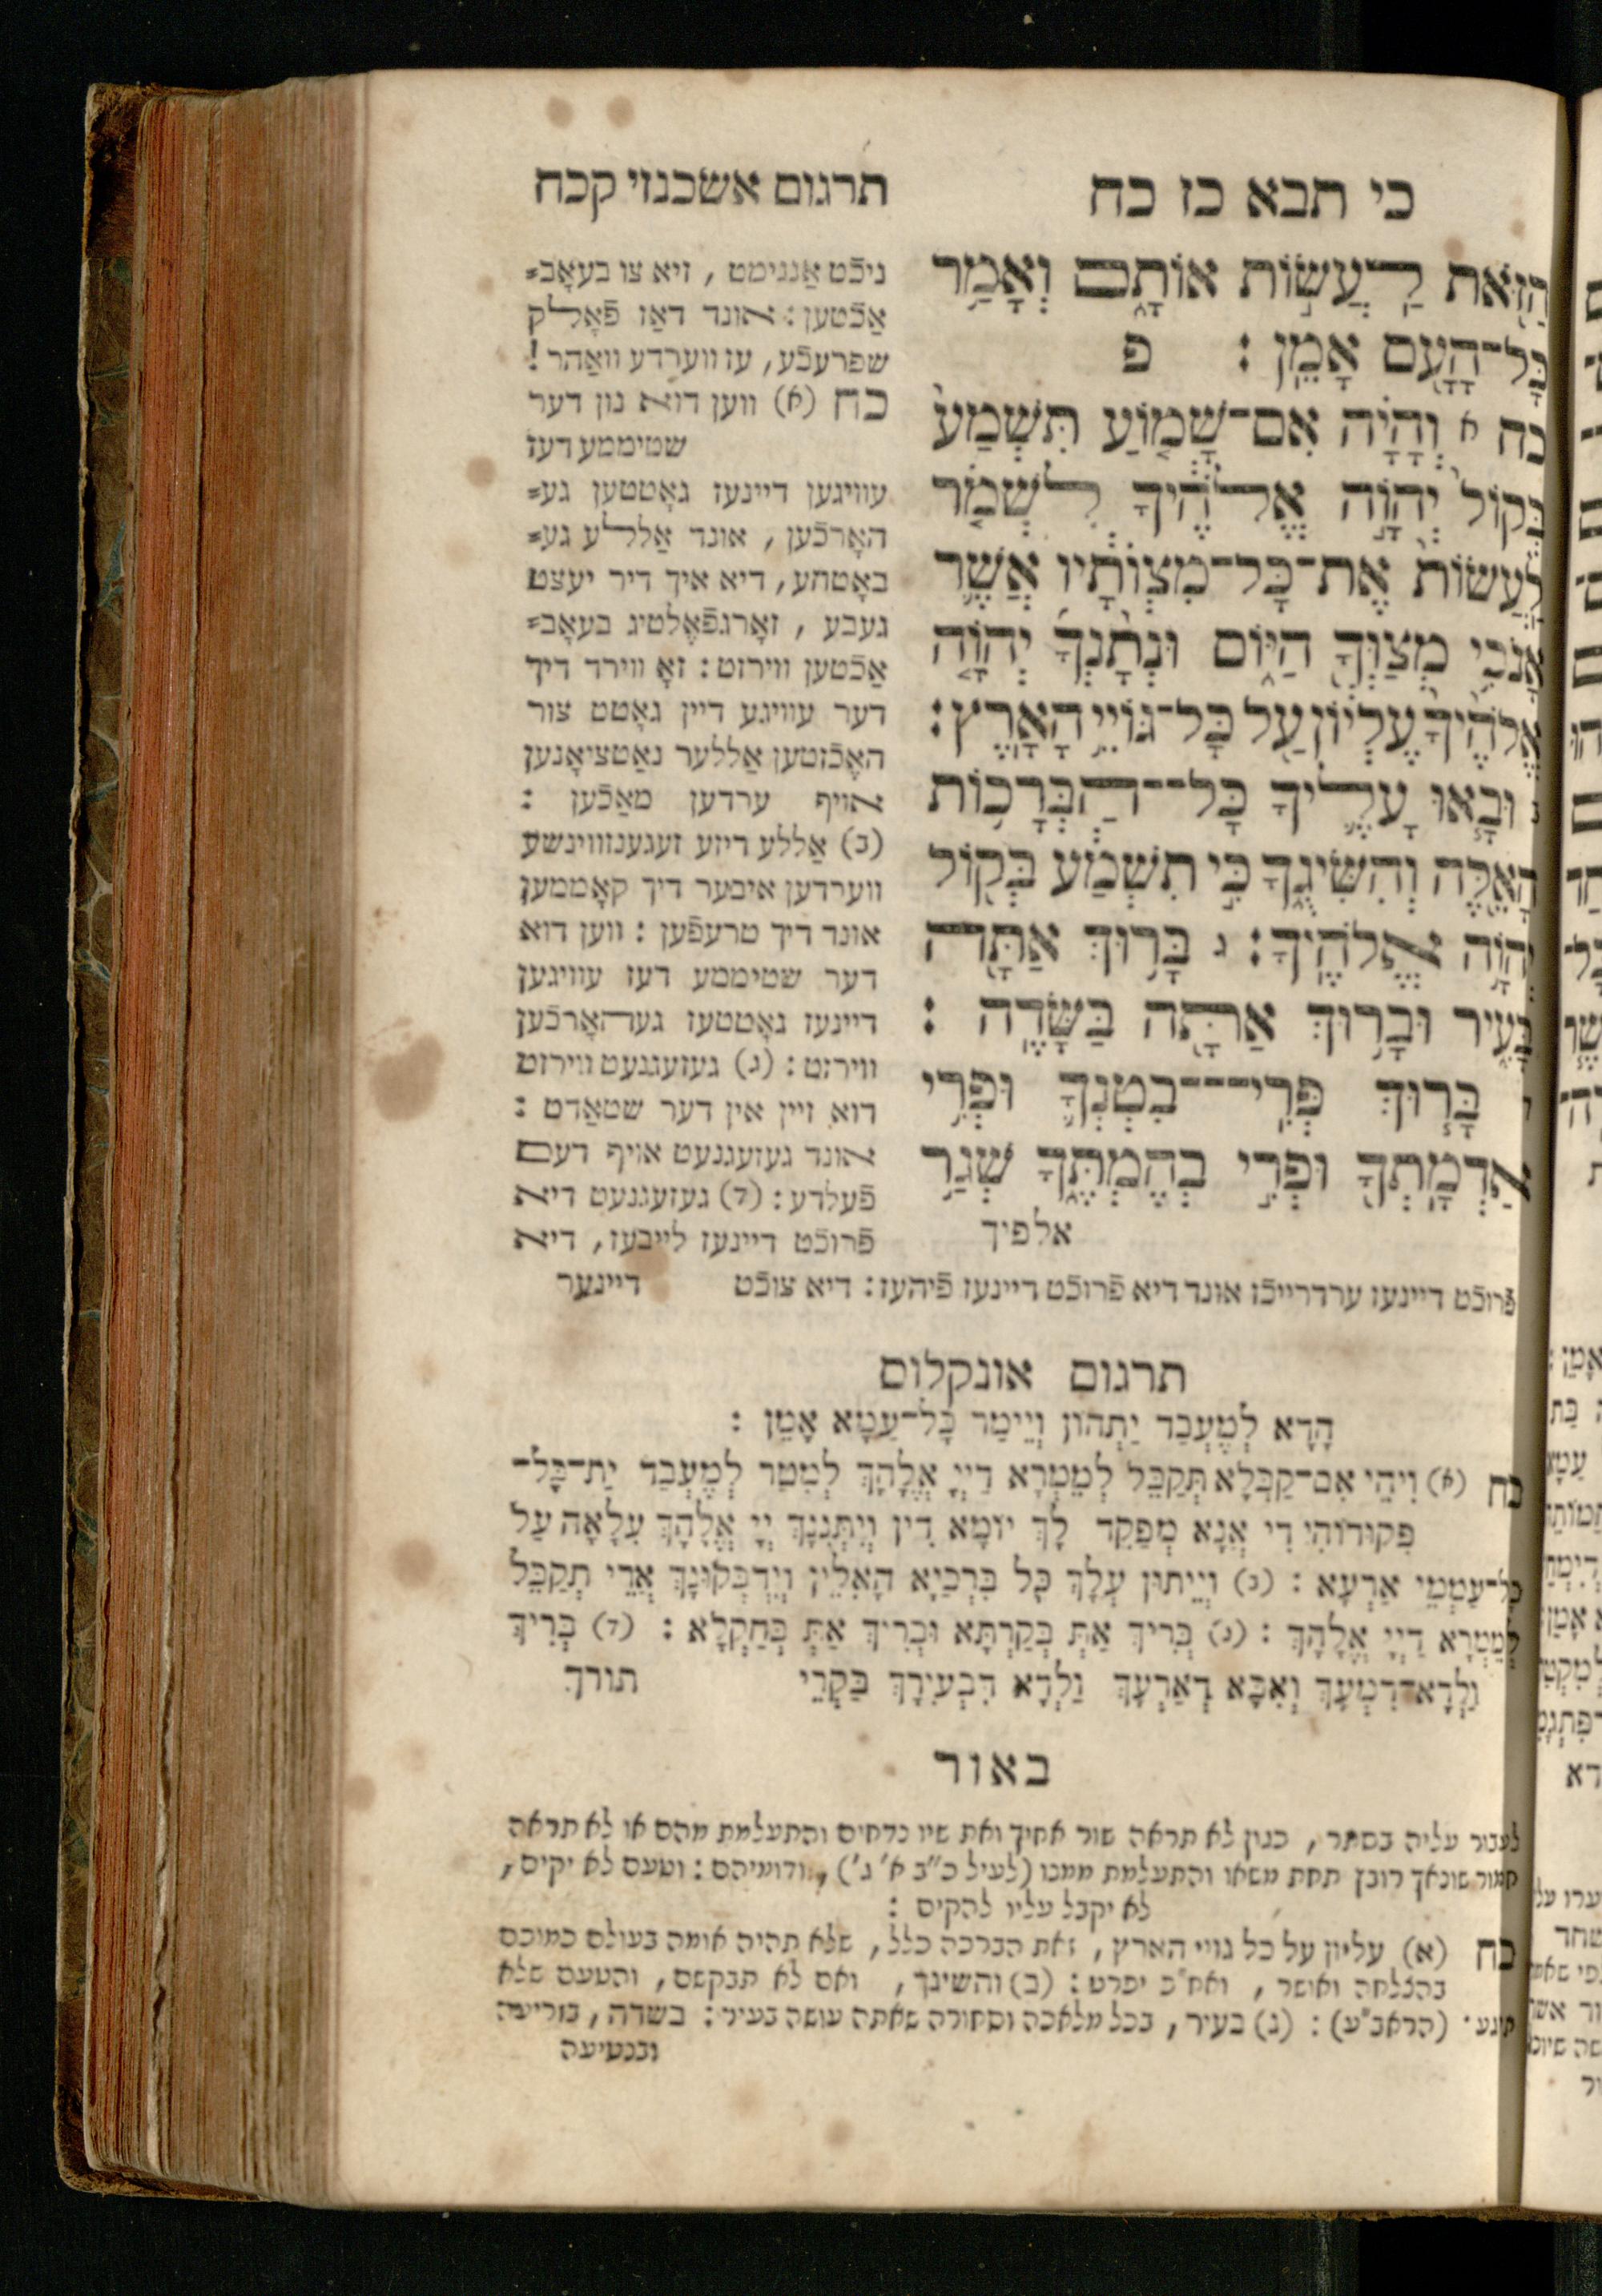 כי תבא כז כח
הַזֹּאת לַעֲשׂוֹת אוֹתָם וְאָמַר
כָּל־הָעָם אָמֵן : פ
כח א וְהָיָה אִם־שָׁמוֹעַ תִּשְׁמַע
בְּקוֹל יְהוָֹה אֱלֹהֶיךָ לִשְׁמֹר
לַעֲשׂוֹת אֶת־כָּל־מִצְוֹתָיו אֲשֶׁר
אָנֹכִי מְצַוְּךָ הַיּוֹם וּנְתָנְךָ יְהוָֹה
אֱלֹהֶיךָ עֶלְיוֹן עַל כָּל־גּוֹיֵי הָאָרֶץ :
וּבָאוּ עָלֶיךָ כָּל־הַבְּרָכוֹת
הָאֵלֶּה וְהִשִּׂיגֻךָ כִּי תִשְׁמַע בְּקוֹל
יְהוָֹה אֱלֹהֶיךָ : ג בָּרוּךְ אַתָּה
בָּעִיר וּבָרוּךְ אַתָּה בַּשָּׂדֶה :
בָּרוּךְ פְּרִי־בִטְנְךָ וּפְרִי
אַדְמָתְךָ וּפְרִי בְהֶמְתֶּךָ שְׁגַר
אלפיך
תרגום אשכנזי קכח
ניכֿט אַננימט, זיא צו בעאָב=
אַכֿטען : אונד דאַז פֿאָלק
שפרעכֿע, עז ווערדע וואַהר !
כח (א) ווען דוא נון דער
שטיממע דעז
עוויגען דיינעז גאָטטען גע=
האָרכֿען, אונד אַללע גע=
באָטהע, דיא איך דיר יעצט
געבע, זאָרגפֿאֶלטיג בעאָב=
אַכֿטען ווירזט : זאָ ווירד דיך
דער עוויגע דיין גאָטט צור
האֶכֿזטען אַללער נאַטציאָנען
אויף ערדען מאַכֿען :
(ב) אַללע דיזע זעגענזווינשע
ווערדען איבער דיך קאָממען
אונד דיך טרעפֿען : ווען דוא
דער שטיממע דעז עוויגען
דיינעז גאָטטעז געהאָרכֿען
ווירזט : (ג) געזעגנעט ווירזט
דוא זיין אין דער שטאַדט :
אונד געזעגנעט אויף דעם
פֿעלדע : (ד) געזעגנעט דיא
פֿרוכֿט דיינעז לייבעז, דיא
פֿרוכֿט דיינעז ערדרייכֿז אונד דיא פֿרוכֿט דיינעז פֿיהעז : דיא צוכֿט דיינער
תרגום אונקלוס
הָדָא לְמֶעְבַּד יַתְהוֹן וְיֵימַר כָּל־עַמָּא אָמֵן :
כח (א) וִיהֵי אִם־קַבָּלָא תְּקַבֵּל לְמֵמְרָא דַיְיָ אֱלָהָךְ לְמִטַּר לְמֶעְבַּד יַת־כָּל־
פִּקּוּדוֹהִי דִי אֲנָא מְפַקֵּד לָךְ יוֹמָא דֵין וְיִתְּנִנָּךְ יְיָ אֱלָהָךְ עִלָּאָה עַל
כָּל־עַמְמֵי אַרְעָא : (ב) וְיֵיתוּן עֲלָךְ כָּל בִּרְכַיָּא הָאִלֵּין וְיַדְבְּקוּנָּךְ אֲרֵי תְקַבֵּל
לְמֵמְרָא דַיְיָ אֱלָהָךְ : (ג) בְּרִיךְ אַתְּ בְּקַרְתָּא וּבְרִיךְ אַתְּ בְּחַקְלָא : (ד) בְּרִיךְ
וַלְדָא דִמְעָךְ וְאִבָּא דְאַרְעָךְ וַלְדָא דִבְעִירָךְ בַּקְרֵי תורך
באור
לעבור עליה בסתר, כגון לא תראה שור אחיך ואת שיו נדחים והתעלמת מהם או לא תראה
חמור שונאך רובץ תחת משאו והתעלמת ממנו (לעיל כ״ב א׳ ג׳), ודומיהם : וטעם לא יקים,
לא יקבל עליו להקים :
כח (א) עליון על כל גויי הארץ, זאת הברכה כלל, שלא תהיה אומה בעולם כמוכם
בהצלחה ואושר, ואח״כ יפרט : (ב) והשיגך, ואם לא תבקשם, והטעם שלא
תיגע · (הראב״ע) : (ג) בעיר, בכל מלאכה וסחורה שאתה עושה בעיר : בשדה, בזריעה
ובנטיעה